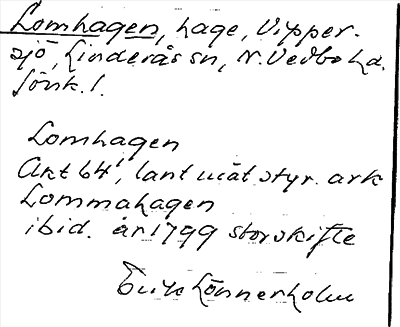 Lomhagen, hage, Vipper-
sjö, Linderås sn, N. Vedbo hd.
Jönk. l.
Lomhagen
Akt 64', lantmätstyr. ark
Lommahagen
ibid. år 1799 storskifte
Erik Lönnerholm